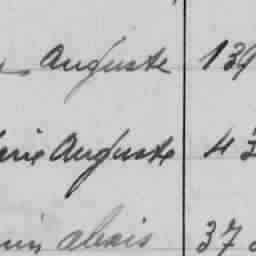 Auguste 139
Auguste 43
alexis 37